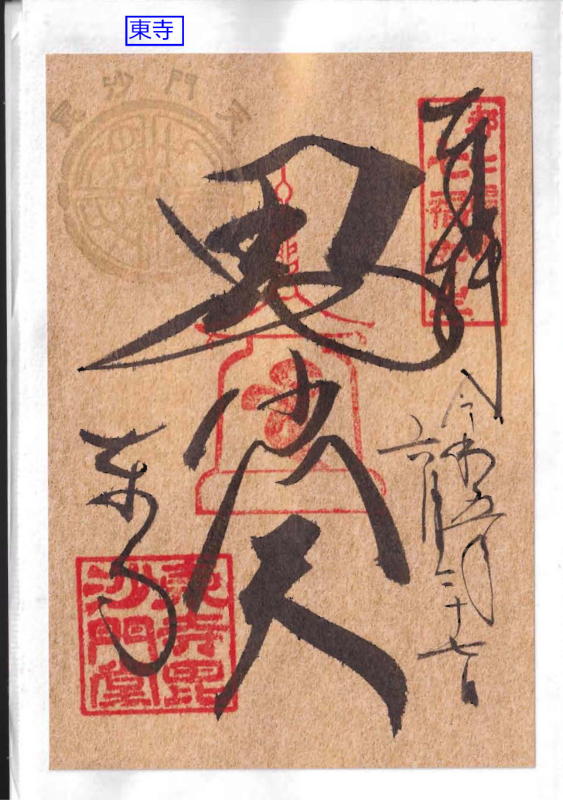 東寺
毘沙門天
奉拝
令和五年
六月二十七日
毘沙門天
東寺
東寺毘
沙門堂